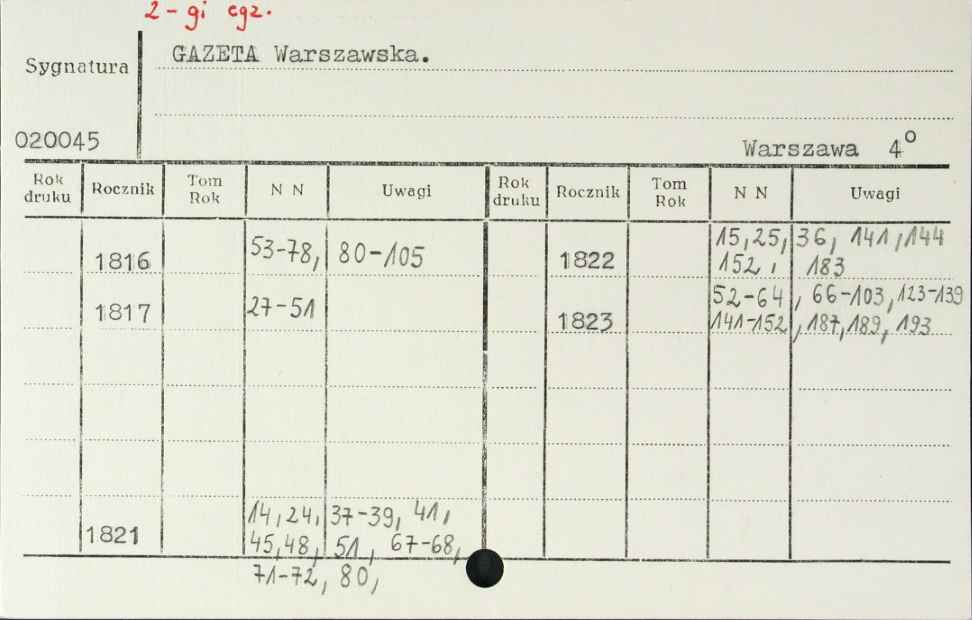 2-gi egz.
GAZETA Warszawska.
Sygnatura
020045
Warszawa 4°
Rok druku Rocznik Tom Rok N N Uwagi Rok druku Rocznik Tom Rok N N Uwagi
1816 53-78, 80-105
1817 27-51
1821 14, 24, 37-39, 41,
45, 48, 51, 67-68,
71-72, 80,
1822 15, 25, 36, 141, 144
152, 183
1823 52-64, 66-103, 123-139
141-152, 187, 189, 193